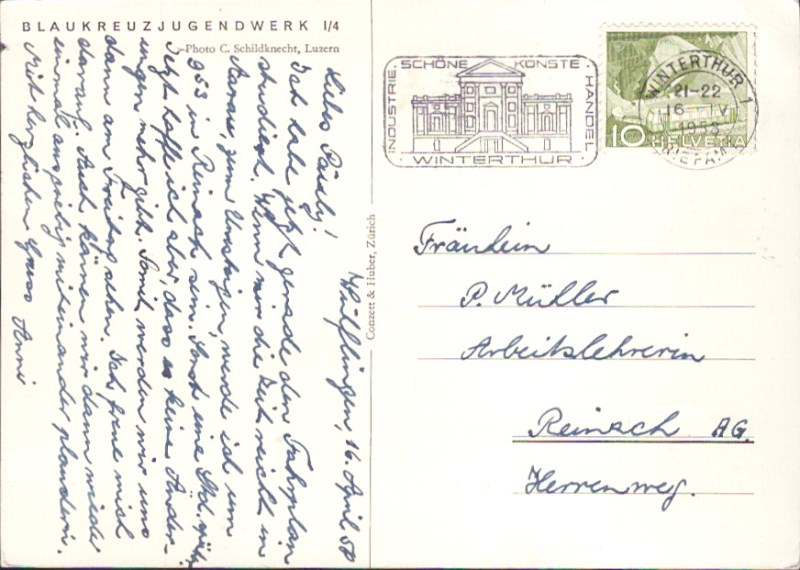 BLAUKREUZJUGENDWERK I/4
Photo C. Schildknecht, Luzern
Wülflingen, 16. April 58
Liebes Päuly!
Ich habe jetzt gerade den Fahrplan
studiert. Wenn mir die Zeit reicht in
Aarau, zum Umsteigen, werde ich um
953 in Reinach sein. Sonst eine Std. später.
Jetzt hoffe ich aber, dass es keine Änder-
ungen mehr gibt. Somit werden wir uns
dann am Freitag sehen. Ich freue mich
darauf. Auch können wir dann wieder
einmal ausgiebig miteinander plaudern.
Mit herzlichem Gruss Anni
Conzett & Huber, Zürich
INDUSTRIE · SCHÖNE KÜNSTE · HANDEL
· WINTERTHUR ·
WINTERTHUR 1
21-22
16 IV
10 HELVETIA
Fräulein
P. Müller
Arbeitslehrerin
Reinach AG.
Herrenweg.